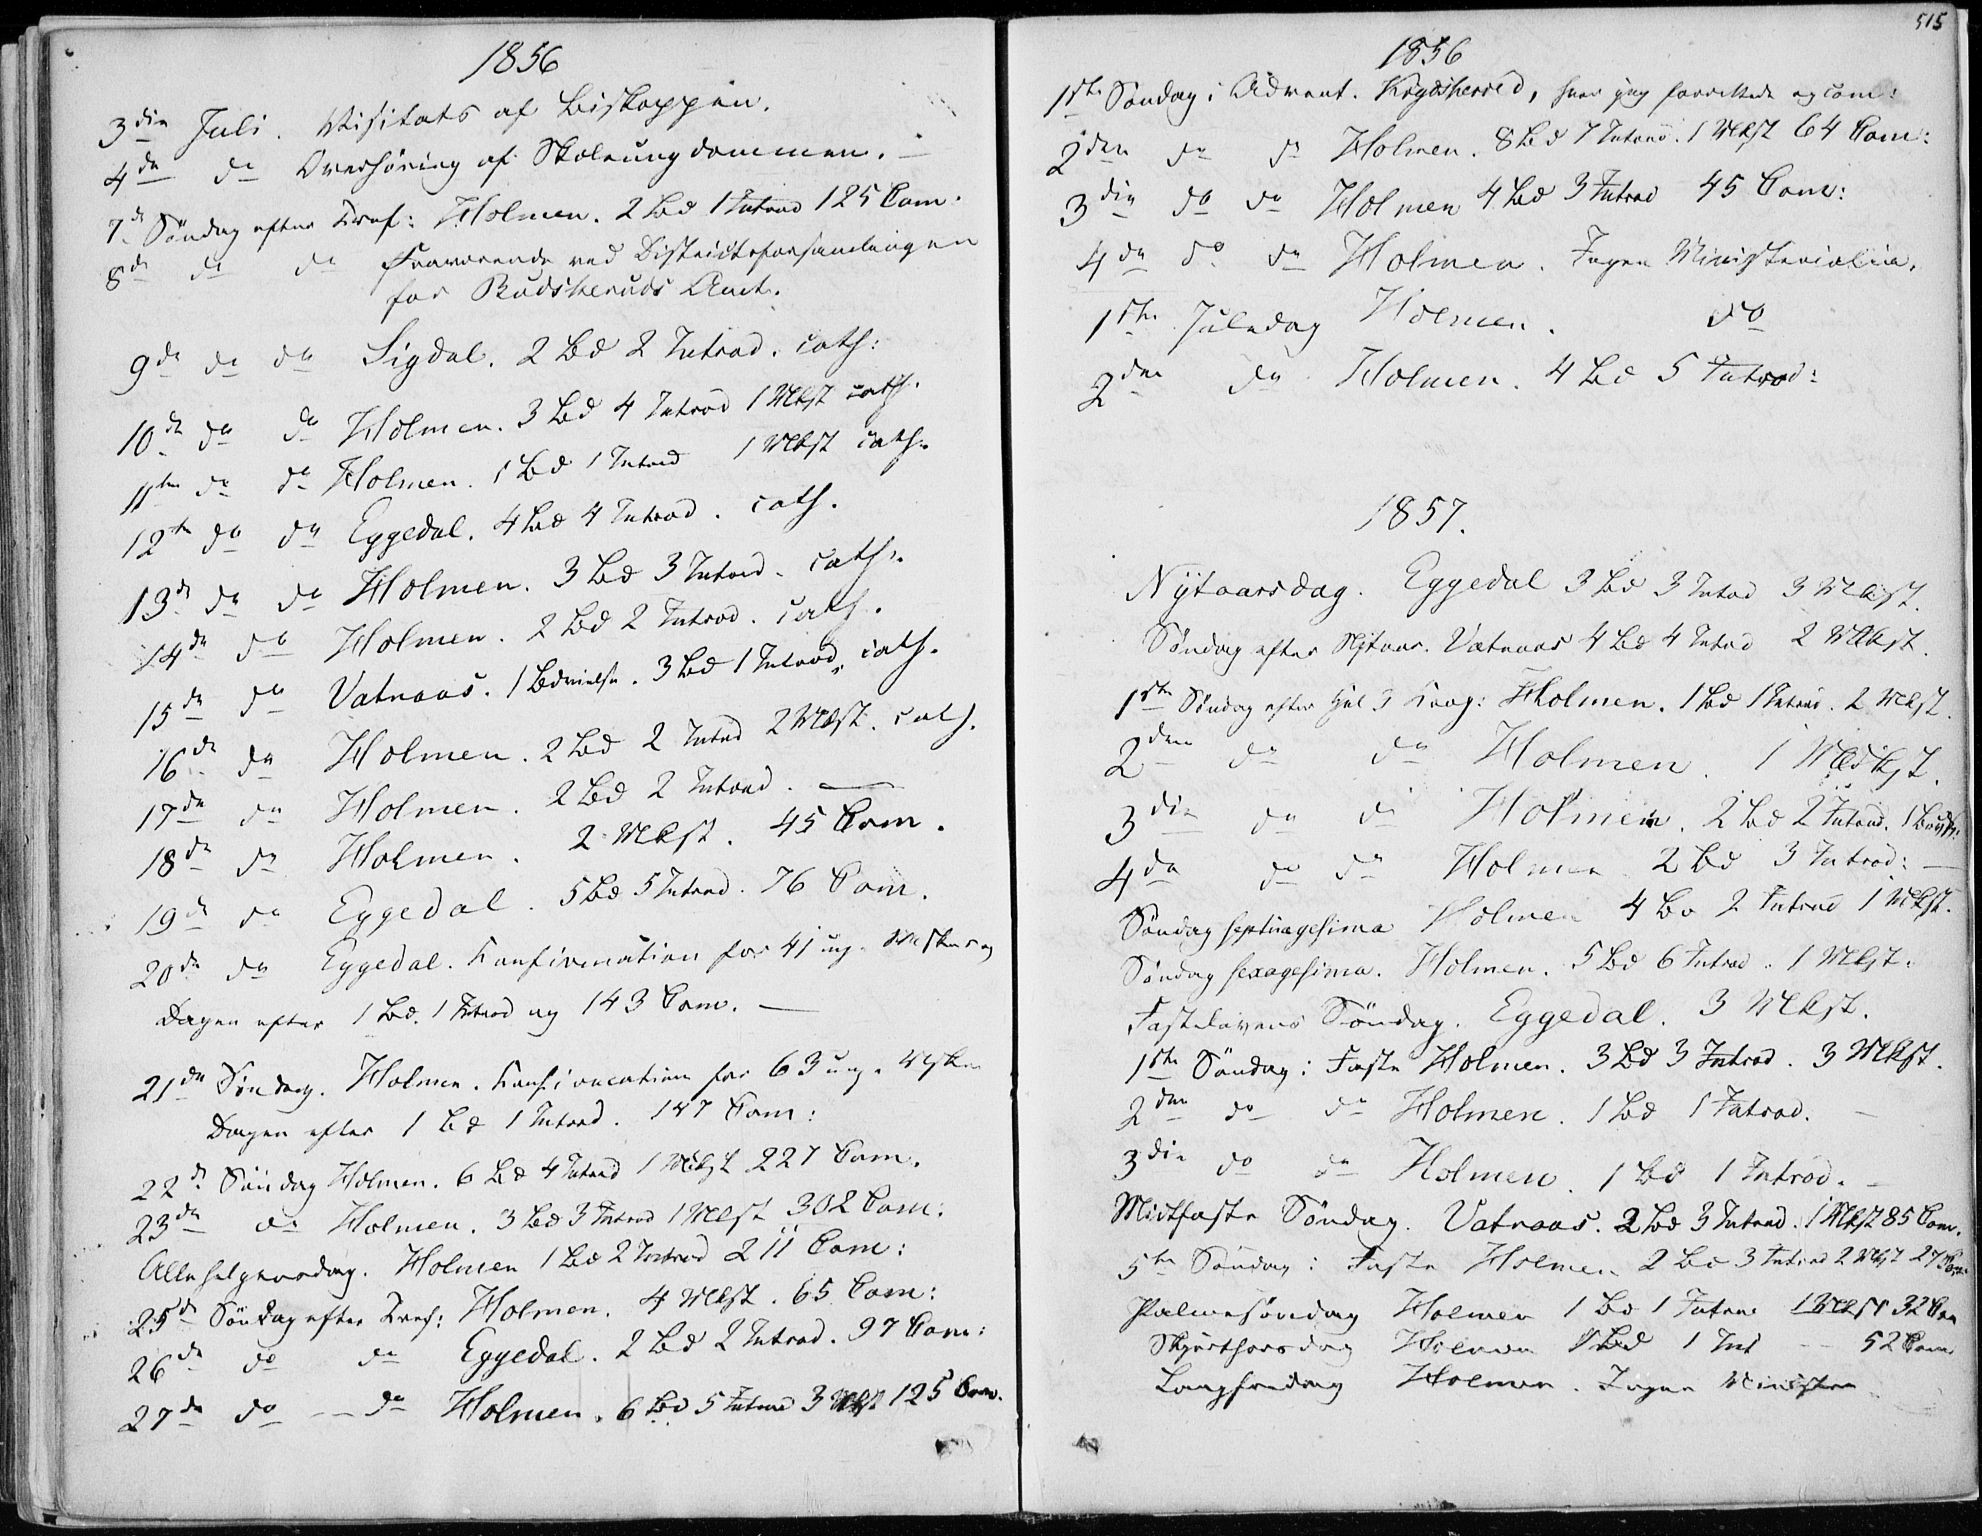 1856
3die Juli. Visitats af Biskoppen.
4de do Overhöring af Skoleungdommen. —
7de Söndag efter Tref: Holmen. 2 Bd 1 Introd 125 Com:
8de do do Fraværende ved Districtsforsamlingen
for Budskeruds Amt.
9de do do Sigdal. 2 Bd 2 Introd. cath:
10de do do Holmen. 3 Bd 4 Introd 1 Vlbst cath:
11te do do Holmen. 1 Bd 1 Introd 1 Vlbst cath.
12te do do Eggedal. 4 Bd 4 Introd. cath.
13de do do Holmen. 3 Bd 3 Introd. cath.
14de do Holmen. 2 Bd 2 Introd. cath.
15de do Vatnaas. 1 Bdvielse. 3 Bd 1 Introd, cath.
16de do Holmen. 2 Bd 2 Introd 2 Vlbst. cath.
17de do Holmen. 2 Bd 2 Introd. —
18de do Holmen. 2 Vlbst. 45 Com.
19de do Eggedal. 5 Bd 5 Introd. 76 Com.
20de do Eggedal. Konfirmation for 41 ung. Msker og
Dagen efter 1 Bd. 1 Introd og 143 Com. —
21de Söndag. Holmen. Konfirmation for 63 unge Msker
Dagen efter 1 Bd 1 Introd. 147 Com:
22de Söndag Holmen. 6 Bd 4 Introd 1 Vlbst 227 Com.
23de do Holmen. 3 Bd 3 Introd 1 Vlbst 302 Com:
Allehelgensdag. Holmen 1 Bd 2 Introd 211 Com:
25de Söndag efter Tref: Holmen. 4 Vlbst. 65 Com:
26de do do Eggedal. 2 Bd 2 Introd. 97 Com:
27de do — do Holmen. 6 Bd 5 Introd 3 Vlbst 125 Com.
515
1856
1ste Söndag i Advent. Krydsherred, hvor jeg forrettede og com:
2den do do Holmen. 8 Bd 7 Introd. 1 Vlbst 64 Com:
3die do do Holmen 4 Bd 3 Introd 45 Com:
4de do do Holmen. Ingen Ministerialia.
1ste Juledag Holmen. do
2den do Holmen. 4 Bd 5 Introd:
1857.
Nytaarsdag. Eggedal 3 Bd 3 Introd 3 Vlbst.
Söndag efter Nytaar. Vatnaas 4 Bd 4 Introd 2 Vlbst.
1ste Söndag efter Hel 3 Kong: Holmen. 1 Bd 1 Introd. 2 Vlbst.
2den do do Holmen. 1 Vlbst.
3die do do Holmen. 2 Bd 2 Introd. 1
4de do do Holmen 2 Bd 3 Introd: —
Söndag septuagesima Holmen 4 Bd 2 Introd 1 Vlbst.
Söndag sexagesima. Holmen. 5 Bd 6 Introd. 1 Vlbst.
Fastelavens Söndag. Eggedal. 3 Vlbst.
1ste Söndag i Faste Holmen. 3 Bd 3 Introd. 3 Vlbst.
2den do do Holmen. 1 Bd 1 Introd. —
3die do do Holmen. 1 Bd 1 Introd. —
Midtfaste Söndag. Vatnaas. 2 Bd 3 Introd. 1 Vlbst 85 Com.
5te Söndag i Faste Holmen 2 Bd 3 Introd 2 Vlbst 27 Com.
Palmesöndag Holmen 1 Bd 1 Introd 1 Vlbst 32 Com
Skjærthorsdag Holmen 1 Bd 1 Int — 52 Com
Langfredag Holmen. Ingen Minister